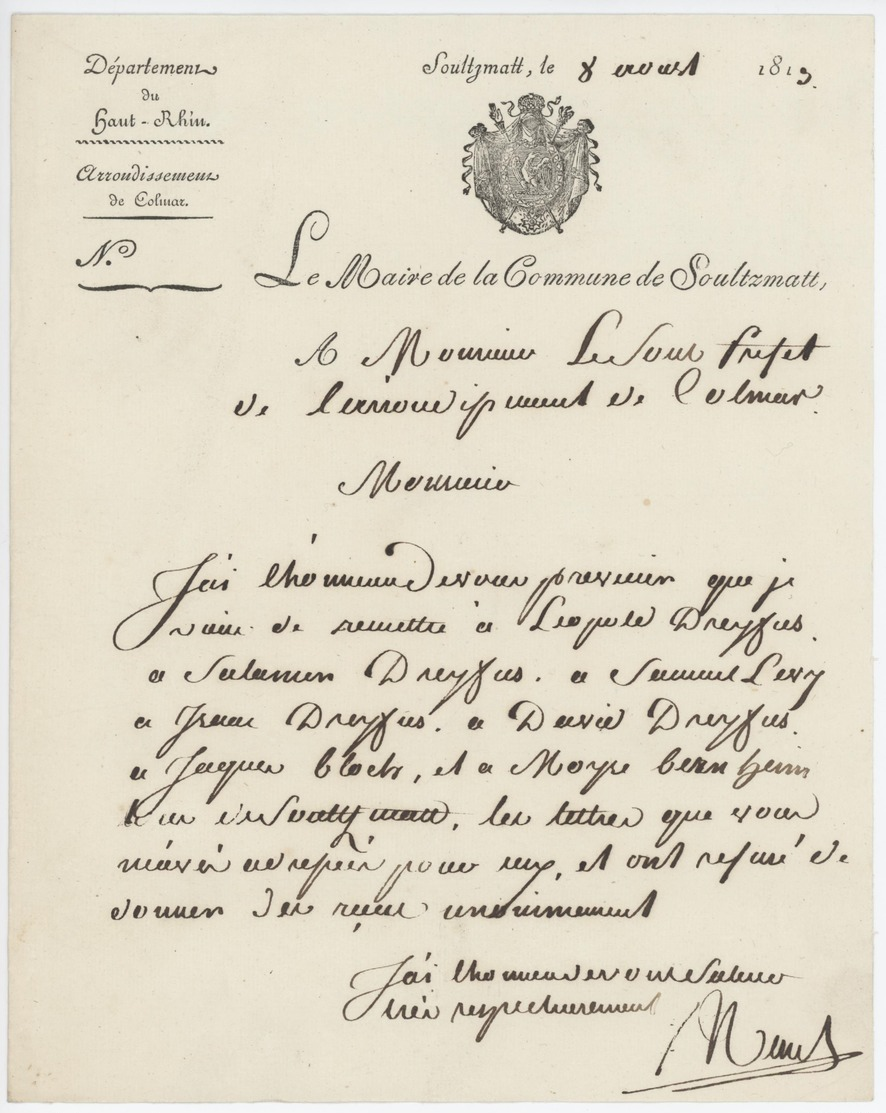 Département
du
Haut-Rhin.
Arrondissement
de Colmar.
N.º
Soultzmatt, le 8 aoust 1813.
Le Maire de la Commune de Soultzmatt,
A Monsieur Le Sous prefet
de l'arrondissement de Colmar.
Monsieur
J'ai lhonneur de vous prevenir que je
vien de remettre à Leopold Dreyfus.
a Salamon Dreyfus. a Samuel Levy
a Isaac Dreyfus. a David Dreyfus.
a Jaques bloch, et a Moyse bernheim
de Soultzmatt, les lettres que vous
m'avés adressés pour eux, et ont refusé de
donner des reçus unanimement
J'ai lhonneur de vous Saluer
très respectueusement